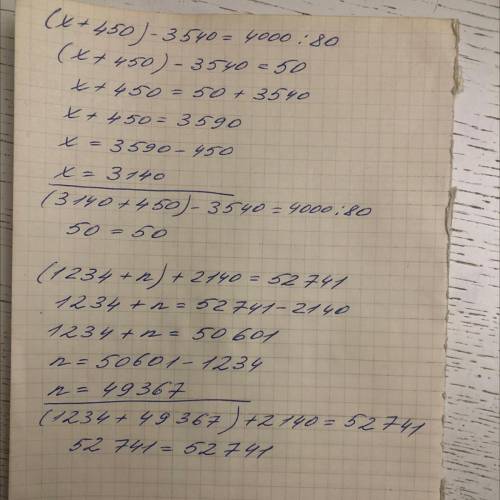 (x + 450) - 3540 = 4000 : 80
(x + 450) - 3540 = 50
x + 450 = 50 + 3540
x + 450 = 3590
x = 3590 - 450
x = 3140
(3140 + 450) - 3540 = 4000 : 80
50 = 50
(1234 + n) + 2140 = 52741
1234 + n = 52741 - 2140
1234 + n = 50601
n = 50601 - 1234
n = 49367
(1234 + 49367) + 2140 = 52741
52741 = 52741